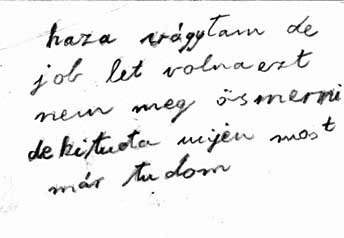 haza vágytam de
job let volna ezt
nem meg ösmerni
de ki tudta mijen most
már tudom